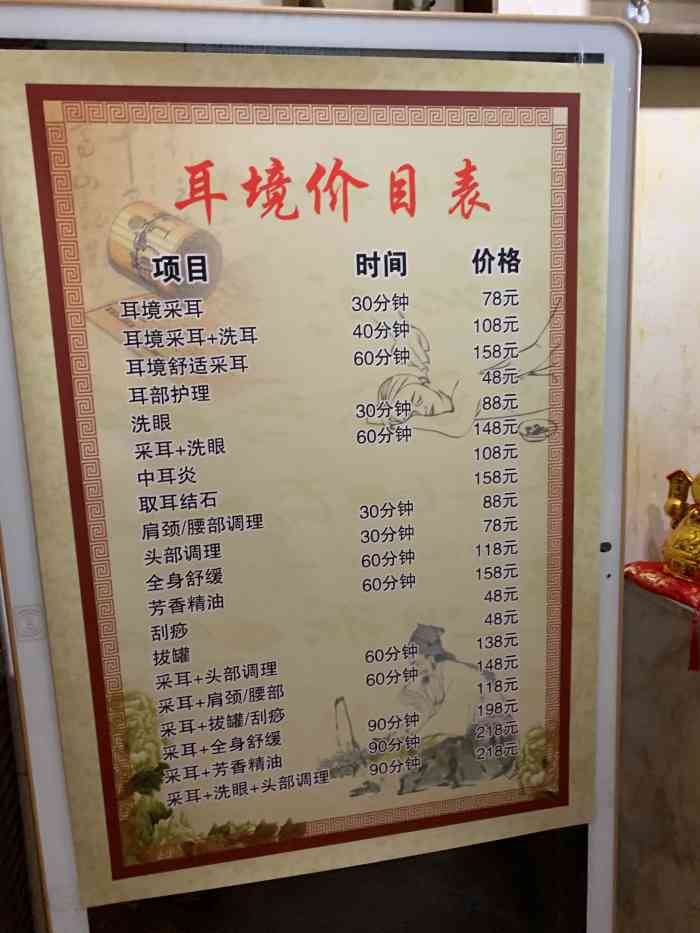 耳境价目表
项目 时间 价格
耳境采耳 30分钟 78元
耳境采耳+洗耳 40分钟 108元
耳境舒适采耳 60分钟 158元
耳部护理 48元
洗眼 30分钟 88元
采耳+洗眼 60分钟 148元
中耳炎 108元
取耳结石 158元
肩颈/腰部调理 30分钟 88元
头部调理 30分钟 78元
全身舒缓 60分钟 118元
芳香精油 60分钟 158元
刮痧 48元
拔罐 48元
采耳+头部调理 60分钟 138元
采耳+肩颈/腰部 60分钟 148元
采耳+拔罐/刮痧 118元
采耳+全身舒缓 90分钟 198元
采耳+芳香精油 90分钟 218元
采耳+洗眼+头部调理 90分钟 218元